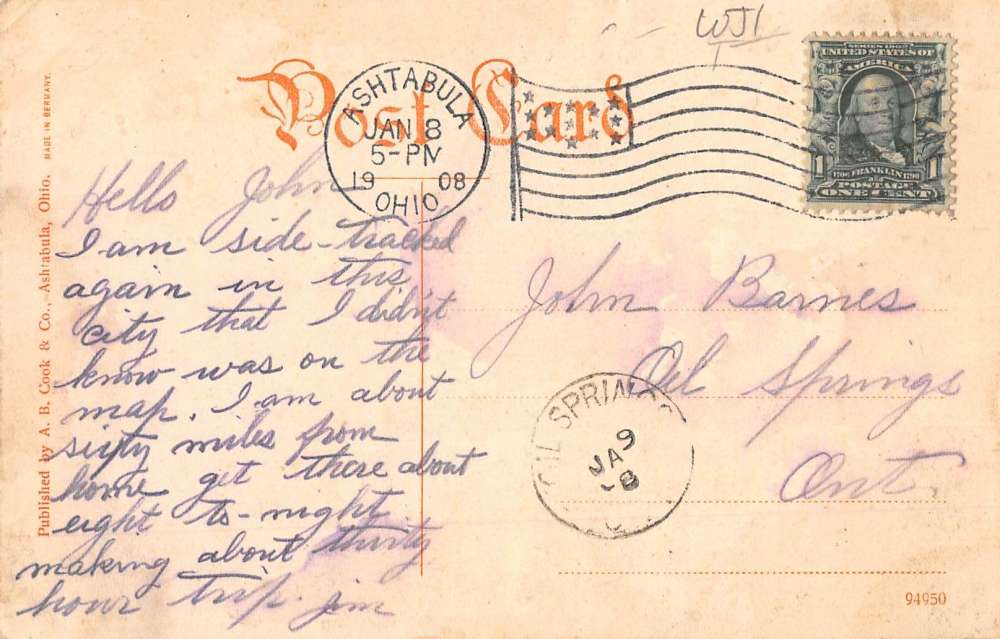 WJ1
Post Card
ASHTABULA
JAN 8
5-PM
1908
OHIO
SERIES 1902
UNITED STATES OF
AMERICA
1 1706 FRANKLIN 1790 1
POSTAGE
ONE CENT
MADE IN GERMANY.
Published by A. B. Cook & Co., Ashtabula, Ohio.
Hello John
I am side-tracked
again in this
city that I didn't
know was on the
map. I am about
sixty miles from
home get there about
eight to-night
making about thirty
hour trip. Jim
John Barnes
Oil Springs
Ont.
OIL SPRINGS
JA 9
08
94950